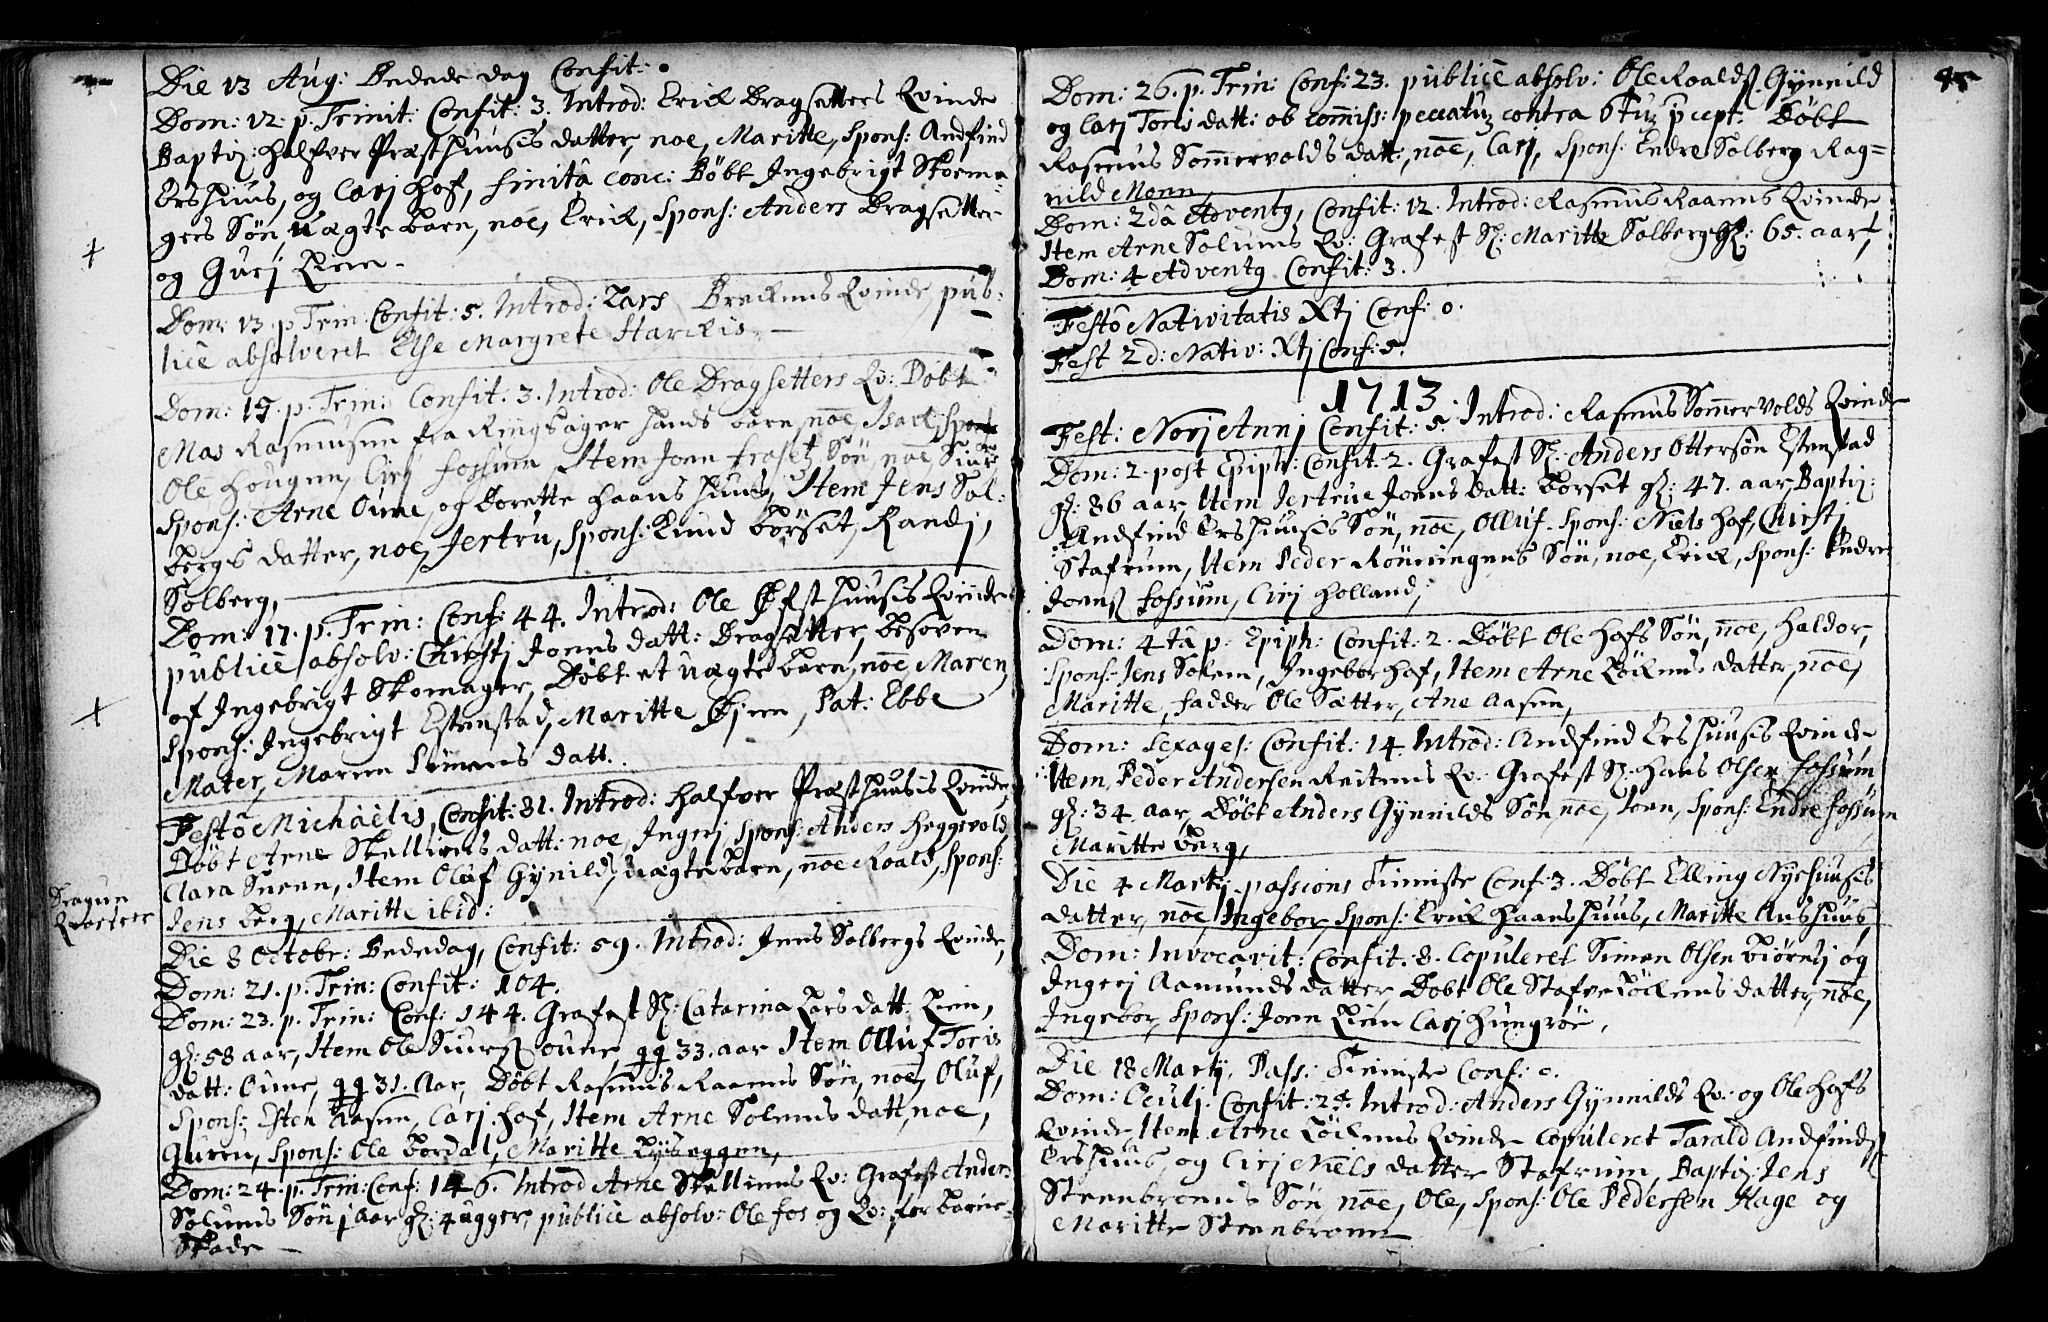 Die 13 Aug: Bededs dag Confit: 0
Dom: 12. p. Trinit: Confit: 3. Introd: Erick Dragsetters Qvinde
Baptiz: Halfver Præsthuusis datter, noe, Maritte, Spons: Andfind
Ershuus, og Carj Hof, finitâ conc: Døbt Ingebrigt Skoema-
gers Søn, uægte barn, noe, Erick, Spons: Anders Dragsetter
og Gurj Lien.
Dom: 13. p. Trin: Confit: 5. Introd: Lars Breckens Qvinde, pub-
licè absolveret Else Margrete Harckis.
Dom: 15. p. Trin: Confit: 3. Introd: Ole Dragsetters Qv: Døbt
Mas Rasmusen fra Ringsager hands barn, noe, Isack, Spons
Ole Hougen, Cirj Fossum, Item Jonn Frosetz Søn, noe, Siur
Spons: Arne Oune, og Dorette Haanshuus, Item Jens Sol-
bergs datter, noe, Jertru, Spons: Knud Børset, Randj,
Solberg,
Dom: 17. p. Trin: Conf: 44. Introd: Ole Øfsthuusis Qvinde
publicè absolv: Chirstj Joens datt: Dragsetter, besoven
af Ingebrigt Skomager, Døbt et uægte barn, noe Maren
Spons: Ingebrigt Estenstad, Maritte Øien, Pat: Ebbe
Mater, Maren Simens datt.
Festô Michaëlis, Confit: 81. Introd: Halfver Præsthuusis Qvinde,
Døbt Arne Skellines datt: noe, Ingerj, Spons: Anders Heggsvold,
Clara Sneen, Item Oluf Gynilds uægte barn, noe Roald, Spons:
Dragun
Qvarteer
Jens berg, Maritte ibid:
Die 8 Octobr: Bededag, Confit: 59. Introd: Jens Solbergs Qvinde,
Dom: 21. p. Trin: Confit: 104.
Dom: 23. p. Trin: Conf: 144. Grafest Sl: Catarina Lars datt: Lien,
gl: 58 aar, Item Ole Siurs Oune, gl 33. aar Item Olluf Toris
datt: Oune, gl 31. Aar, Døbt Rasmus Raanes Søn, noe, Oluf,
Spons: Esten Aasen, Carj Hof, Item Arne Solems datt, noe,
Guren, Spons: Ole Bordal, Maritte
Dom: 24. p. Trin: Conf: 146. Introd Arne Skellines Qv: Grafest Anders
Solums Søn 1 Aar gl: 4 ugger, publicè absolv: Ole fos og Qv: for barne-
Skade
45
Dom: 26. p. Trin: Conf: 23. publicè absolv: Ole Roalds. Gynnild
og Carj Toris datt: ob comiss: peccatu contra 6tu pcept: Døbt
Rasmus Sommervolds datt:, noe, Carj, Spons: Endre Solberg Rag-
nild Monn
Dom: 2dâ Advent9, Confit: 12. Introd: Rasmus Raanes Qvinde
Item Arne Solums Qv: Grafest Sl: Maritte Solberg gl: 65. aar,
Dom: 4 Advent9 Confit: 3.
Festô Nativitatis Xtj Conf: 0.
Fest 2d: Nativ: Xtj Conf: 5.
1713
Fest: Novj Annj Confit: 5. Introd: Rasmus Sommervolds Qvinde
Dom: 2. post Epiph: Confit: 2. Grafest Sl: Anders Ottersøn Estenstad
gl: 86 aar, Item Jertrue Joens datt: Børset gl: 47. aar, Baptiz:
Andfind Ershuusis Søn, noe, Olluf. Spons: Niels Hof, Chirstj
Stafrum, Item Peder Rønningens Søn, noe, Erick, Spons: Endre
Joens Fossum, Cirj Holland,
Dom: 4tâ p. Epiph: Confit: 2. Døbt Ole Hofs Søn, noe, Haldor,
Spons: Jens Solem, Ingebor Hof, Item Arne Løckens datter, noe,
Maritte, fadder Ole Sætter, Ane Aasen,
Dom: Sexages: Confit: 14 Introd: Andfind Ershuusis Qvinde
Item, Peder Andersen Reitens Qv: Grafest Sl: Hans Olsen Fossum
gl: 34 aar, Døbt Anders Gynnilds Søn, noe, Joen, Spons: Endre Fossum
Maritte berg,
Die 4 Martij passions Tienniste Conf: 3. Døbt Elling Nyehuusis
datter, noe, Ingebor, Spons: Erick Haanshuus, Maritte Aushuus
Dom: Invocavit: Confit: 8. Copuleret Simen Olsen Biørlj og
Ingerj Aamunds datter, Døbt Ole Stafve Løckens datter, noe,
Ingebor, Spons: Joen Lien Carj Hungrøe,
Die 18 Martij, Pass: Tienniste Conf: 0.
Dom: Oculj. Confit: 24. Introd: Anders Gynnilds Qv: og Ole Hofs
Qvinde, Item Arne Løckens Qvinde Copuleret Tarald Andfinds
Ershuus, og Cirj Niels datter Stafrum, Baptiz: Jens
Steenbroens Søn noe, Ole, Spons: Ole Pedersen Hage og
Maritte Steenbroen